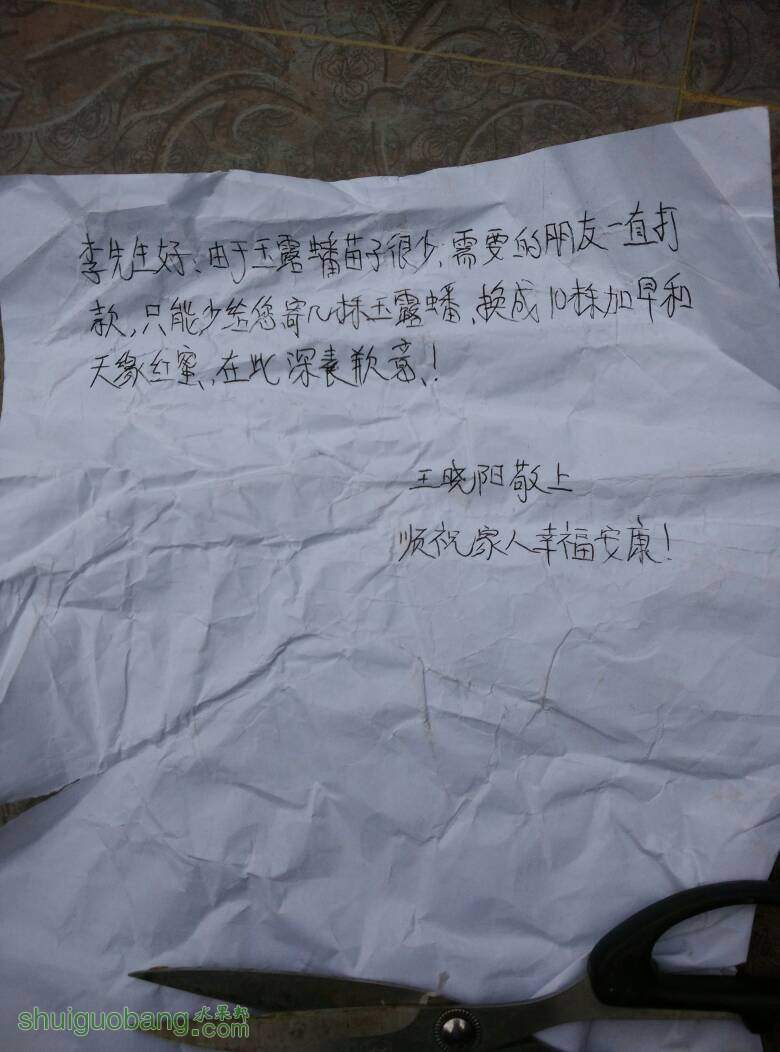 李先生好、由于玉露蟠苗子很少、需要的朋友一直打
款,只能少给您寄几株玉露蟠、换成10株加早和
天缘红蜜、在此深表歉意!
王晓阳敬上
顺祝家人幸福安康!
shuiguobang.com
水果邦